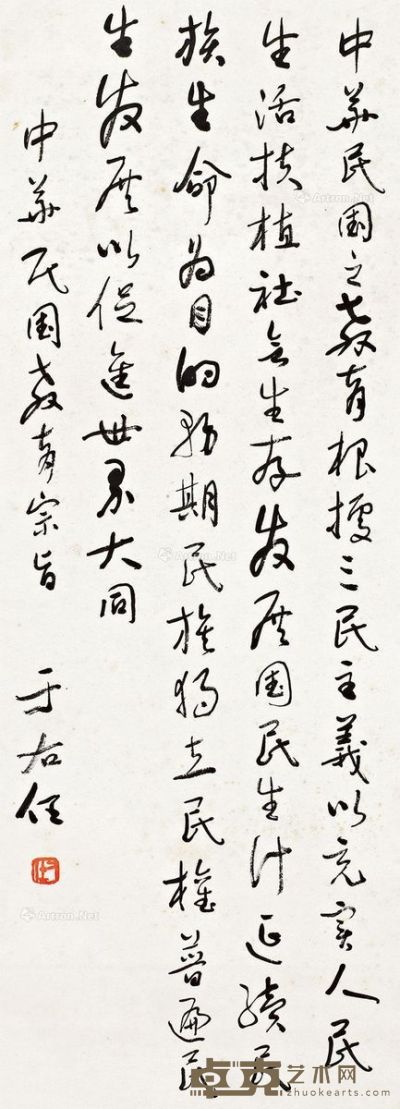 中華民國之教育根據三民主義以充實人民
生活扶植社會生存發展國民生計延續民
族生命為目的務期民族獨立民權普遍民
生發展以促進世界大同
中華民國教育宗旨
于右任
Artron.Net
卓克艺术网
zhuokearts.com